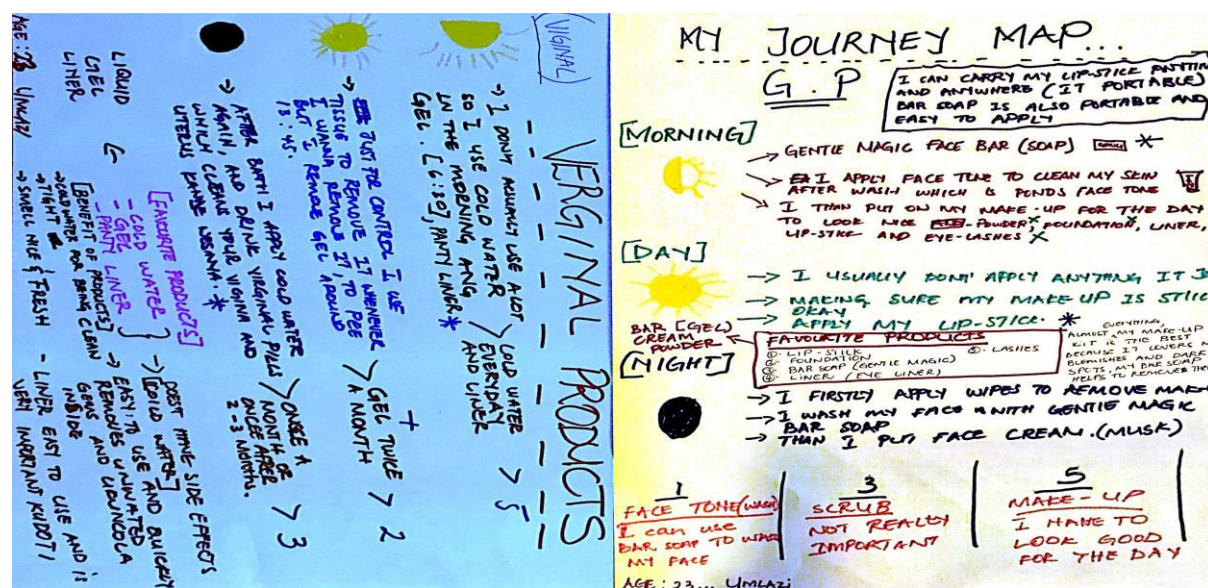 VERGINAL PRODUCTS
(VIGINAL)
→ I DONT ACTUALLY USE A LOT
SO I USE COLD WATER
IN THE MORNING AND
GEL. [6:30], PANTY LINER *
COLD WATER
EVERYDAY
AND LINER
> 5
→ JUST FOR CONTROL I USE
TISSUE TO REMOVE IT WHENEVER
I WANNA REMOVE IT, TO PEE
BUT I REMOVE GEL AROUND
13:45.
+
GEL TWICE
A MONTH
> 2
→ AFTER BATH I APPLY COLD WATER
AGAIN, AND DRINK VIRGINAL PILLS
WHICH CLEANS YOUR VIRGINA AND
UTERUS KANYE WESANYA. *
ONCE A
MONTH OR
ONCE AFTER
2-3 MONTHS.
> 3
[FAVOURITE PRODUCTS]
- COLD WATER
- GEL
- PANTY LINER
→ DOEST HAVE SIDE EFFECTS
[COLD WATER]
→ EASY TO USE AND QUICKLY
REMOVES UNINATED
GERMS AND
INSIDE
[BENEFIT OF PRODUCTS]
→ COLD WATER FOR BEING CLEAN
→ TIGHT
→ SMELL NICE & FRESH
- LINER EASY TO USE AND IS
VERY IMPORTANT KUDOTI
LIQUID
GEL
LINER
AGE: 23 UMLAZI
MY JOURNEY MAP...
G.P
I CAN CARRY MY LIP-STICK ANYTIM
AND ANYWHERE (IT PORTABLE)
BAR SOAP IS ALSO PORTABLE AND
EASY TO APPLY
[MORNING]
→ GENTLE MAGIC FACE BAR (SOAP) *
→ I APPLY FACE TONE TO CLEAN MY SKIN
AFTER WASH WHICH IS PONDS FACE TONE
→ I THAN PUT ON MY MAKE-UP FOR THE DAY
TO LOOK NICE -POWDER, FOUNDATION, LINER,
LIP-STICK AND EYE-LASHES X
[DAY]
→ I USUALLY DONT' APPLY ANYTHING IT J
→ MAKING SURE MY MAKE-UP IS STILL
OKAY
→ APPLY MY LIP-STICK. *
BAR [GEL]
CREAM
POWDER
FAVOURITE PRODUCTS
① LIP-STICK
② FOUNDATION
③ BAR SOAP (GENTLE MAGIC)
④ LINER (EYE LINER)
⑤ LASHES
EVERYTHING,
ALMOST MY MAKE-UP
KIT IS THE BEST
BECAUSE IT COVERS M
BLEMISHES AND DARK
SPOTS, MY BAR SOAP
HELPS TO REMOVE THE
[NIGHT]
→ I FIRSTLY APPLY WIPES TO REMOVE MAKE
→ I WASH MY FACE WITH GENTLE MAGIC
BAR SOAP
→ THAN I PUT FACE CREAM. (MUSK)
1
FACE TONE (wash)
I can use
BAR SOAP TO WASH
MY FACE
3
SCRUB
NOT REALLY
IMPORTANT
5
MAKE-UP
I HAVE TO
LOOK GOOD
FOR THE DAY
AGE: 23... UMLAZI